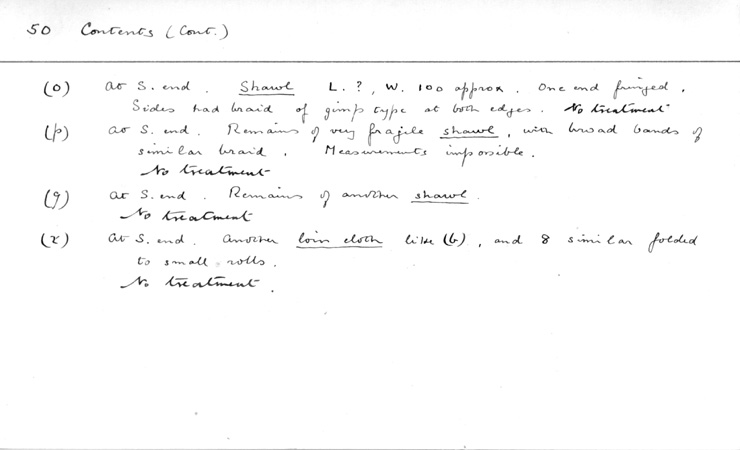 50 Contents (Cont.)
(o) At S. end. Shawl L. ?, W. 100 approx. One end fringed.
Sides had braid of gimp type at both edges. No treatment
(p) At S. end. Remains of very fragile shawl, with broad bands of
similar braid. Measurements impossible.
No treatment
(q) At S. end. Remains of another shawl.
No treatment
(r) At S. end. Another loin cloth like (b), and 8 similar folded
to small rolls.
No treatment.